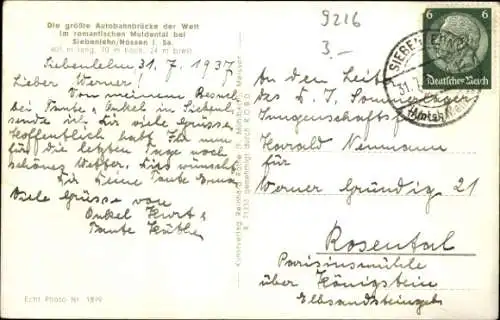 Die größte Autobahnbrücke der Welt
im romantischen Muldental bei
Siebenlehn/Nossen i. Sa.
401 m lang, 70 m hoch, 24 m breit
Siebenlehn 31. 7. 1937
Lieber Werner!
Von meinem Besuch
bei Tante & Onkel in Siebenl.
sende ich Dir viele Grüsse
Hoffentlich habt Ihr nun
für die letzten Tage noch
schönes Wetter. Dies wünscht
Dir Deine Tante
Viele Grüsse von
Onkel Kurt &
Tante Käthe
Echt Photo Nr. 1899
Kunstverlag Reinhard Rothe
9216
3.-
6
Deutsches Reich
SIEBENLEHN
31. 7.
An den Leiter
des D. J. Sommerlager
Jungenschaftsf.
Harald Neumann
für
Werner Gründig 21
Rosental
über Königstein
Elbsandsteingeb.